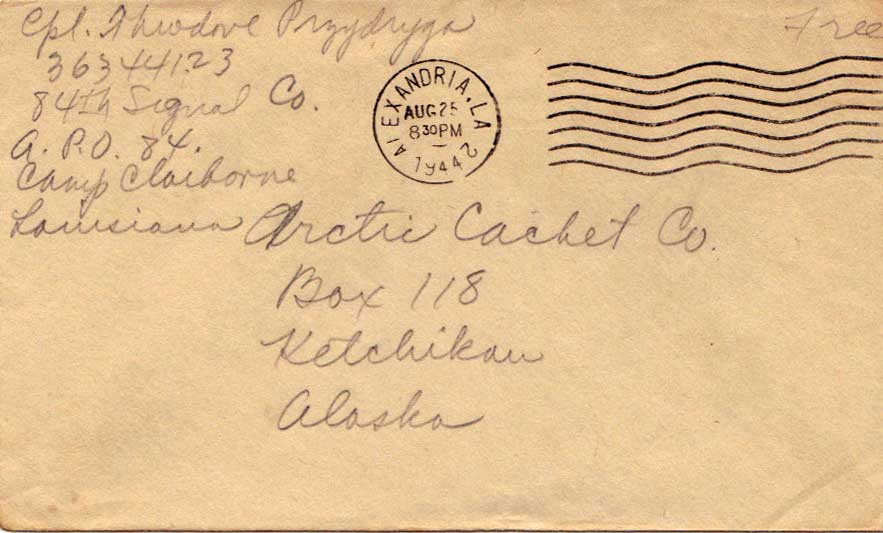 Cpl. Theodore Przydryga
36344123
84th Signal Co.
A. P.O. 84.
Camp Claiborne
Louisiana
Free
ALEXANDRIA, LA
AUG 25
8 30 PM
1944
2
Arctic Cachet Co.
Box 118
Ketchikan
Alaska